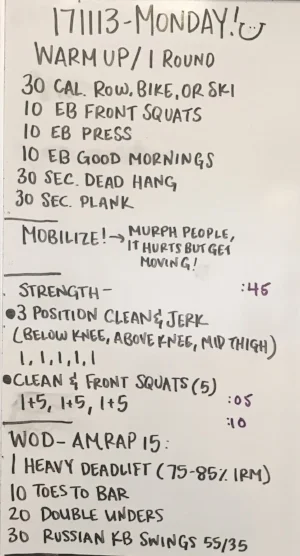 171113-MONDAY!
WARM UP/1 ROUND
30 CAL. ROW, BIKE, OR SKI
10 EB FRONT SQUATS
10 EB PRESS
10 EB GOOD MORNINGS
30 SEC. DEAD HANG
30 SEC. PLANK
MOBILIZE! → MURPH PEOPLE,
IT HURTS BUT GET
MOVING!
STRENGTH - :45
•3 POSITION CLEAN & JERK
(BELOW KNEE, ABOVE KNEE, MID THIGH)
1, 1, 1, 1, 1
•CLEAN & FRONT SQUATS (5)
1+5, 1+5, 1+5 :05
:10
WOD - AMRAP 15:
1 HEAVY DEADLIFT (75-85% 1RM)
10 TOES TO BAR
20 DOUBLE UNDERS
30 RUSSIAN KB SWINGS 55/35